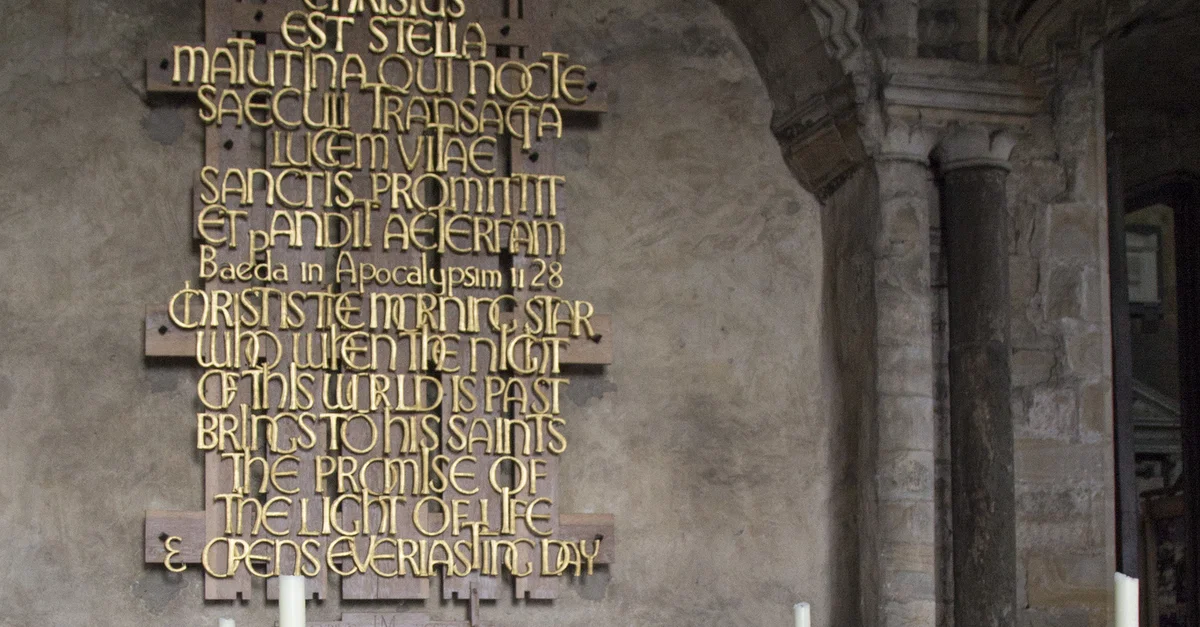 CHRISTUS
EST STELLA
MATUTINA QUI NOCTE
SAECULI TRANSACTA
LUCEM VITAE
SANCTIS PROMITTIT
ET PANDIT AETERNAM
Baeda in Apocalypsim ii 28
CHRIST IS THE MORNING STAR
WHO WHEN THE NIGHT
OF THIS WORLD IS PAST
BRINGS TO HIS SAINTS
THE PROMISE OF
THE LIGHT OF LIFE
& OPENS EVERLASTING DAY